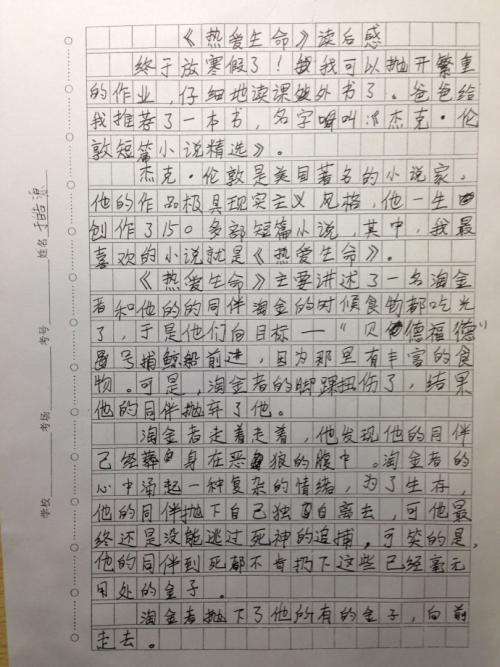 《热爱生命》读后感
终于放寒假了!我可以抛开繁重
的作业,仔细地读课外书了。爸爸给
我推荐了一本书,名字叫:《杰克·伦
敦短篇小说精选》。
杰克·伦敦是美国著名的小说家,
他的作品极具现实主义风格,他一生
创作了150多部短篇小说,其中,我最
喜欢的小说就是《热爱生命》。
《热爱生命》主要讲述了一名淘金
者和他的的同伴淘金的时候食物都吃光
了,于是他们向目标—“贝德福德”
号捕鲸船前进,因为那里有丰富的食
物。可是,淘金者的脚踝扭伤了,结果
他的同伴抛弃了他。
淘金者走着走着,他发现他的同伴
已经葬身在恶狼的腹中。淘金者的
心中涌起一种复杂的情绪,为了生存,
他的同伴抛下自己独自离去,可他最
终还是没能逃过死神的追捕,可笑的是,
他的同伴到死都不肯扔下这些已经毫无
用处的金子。
淘金者抛下了他所有的金子,向前
走去。
学校 考场 考号 姓名